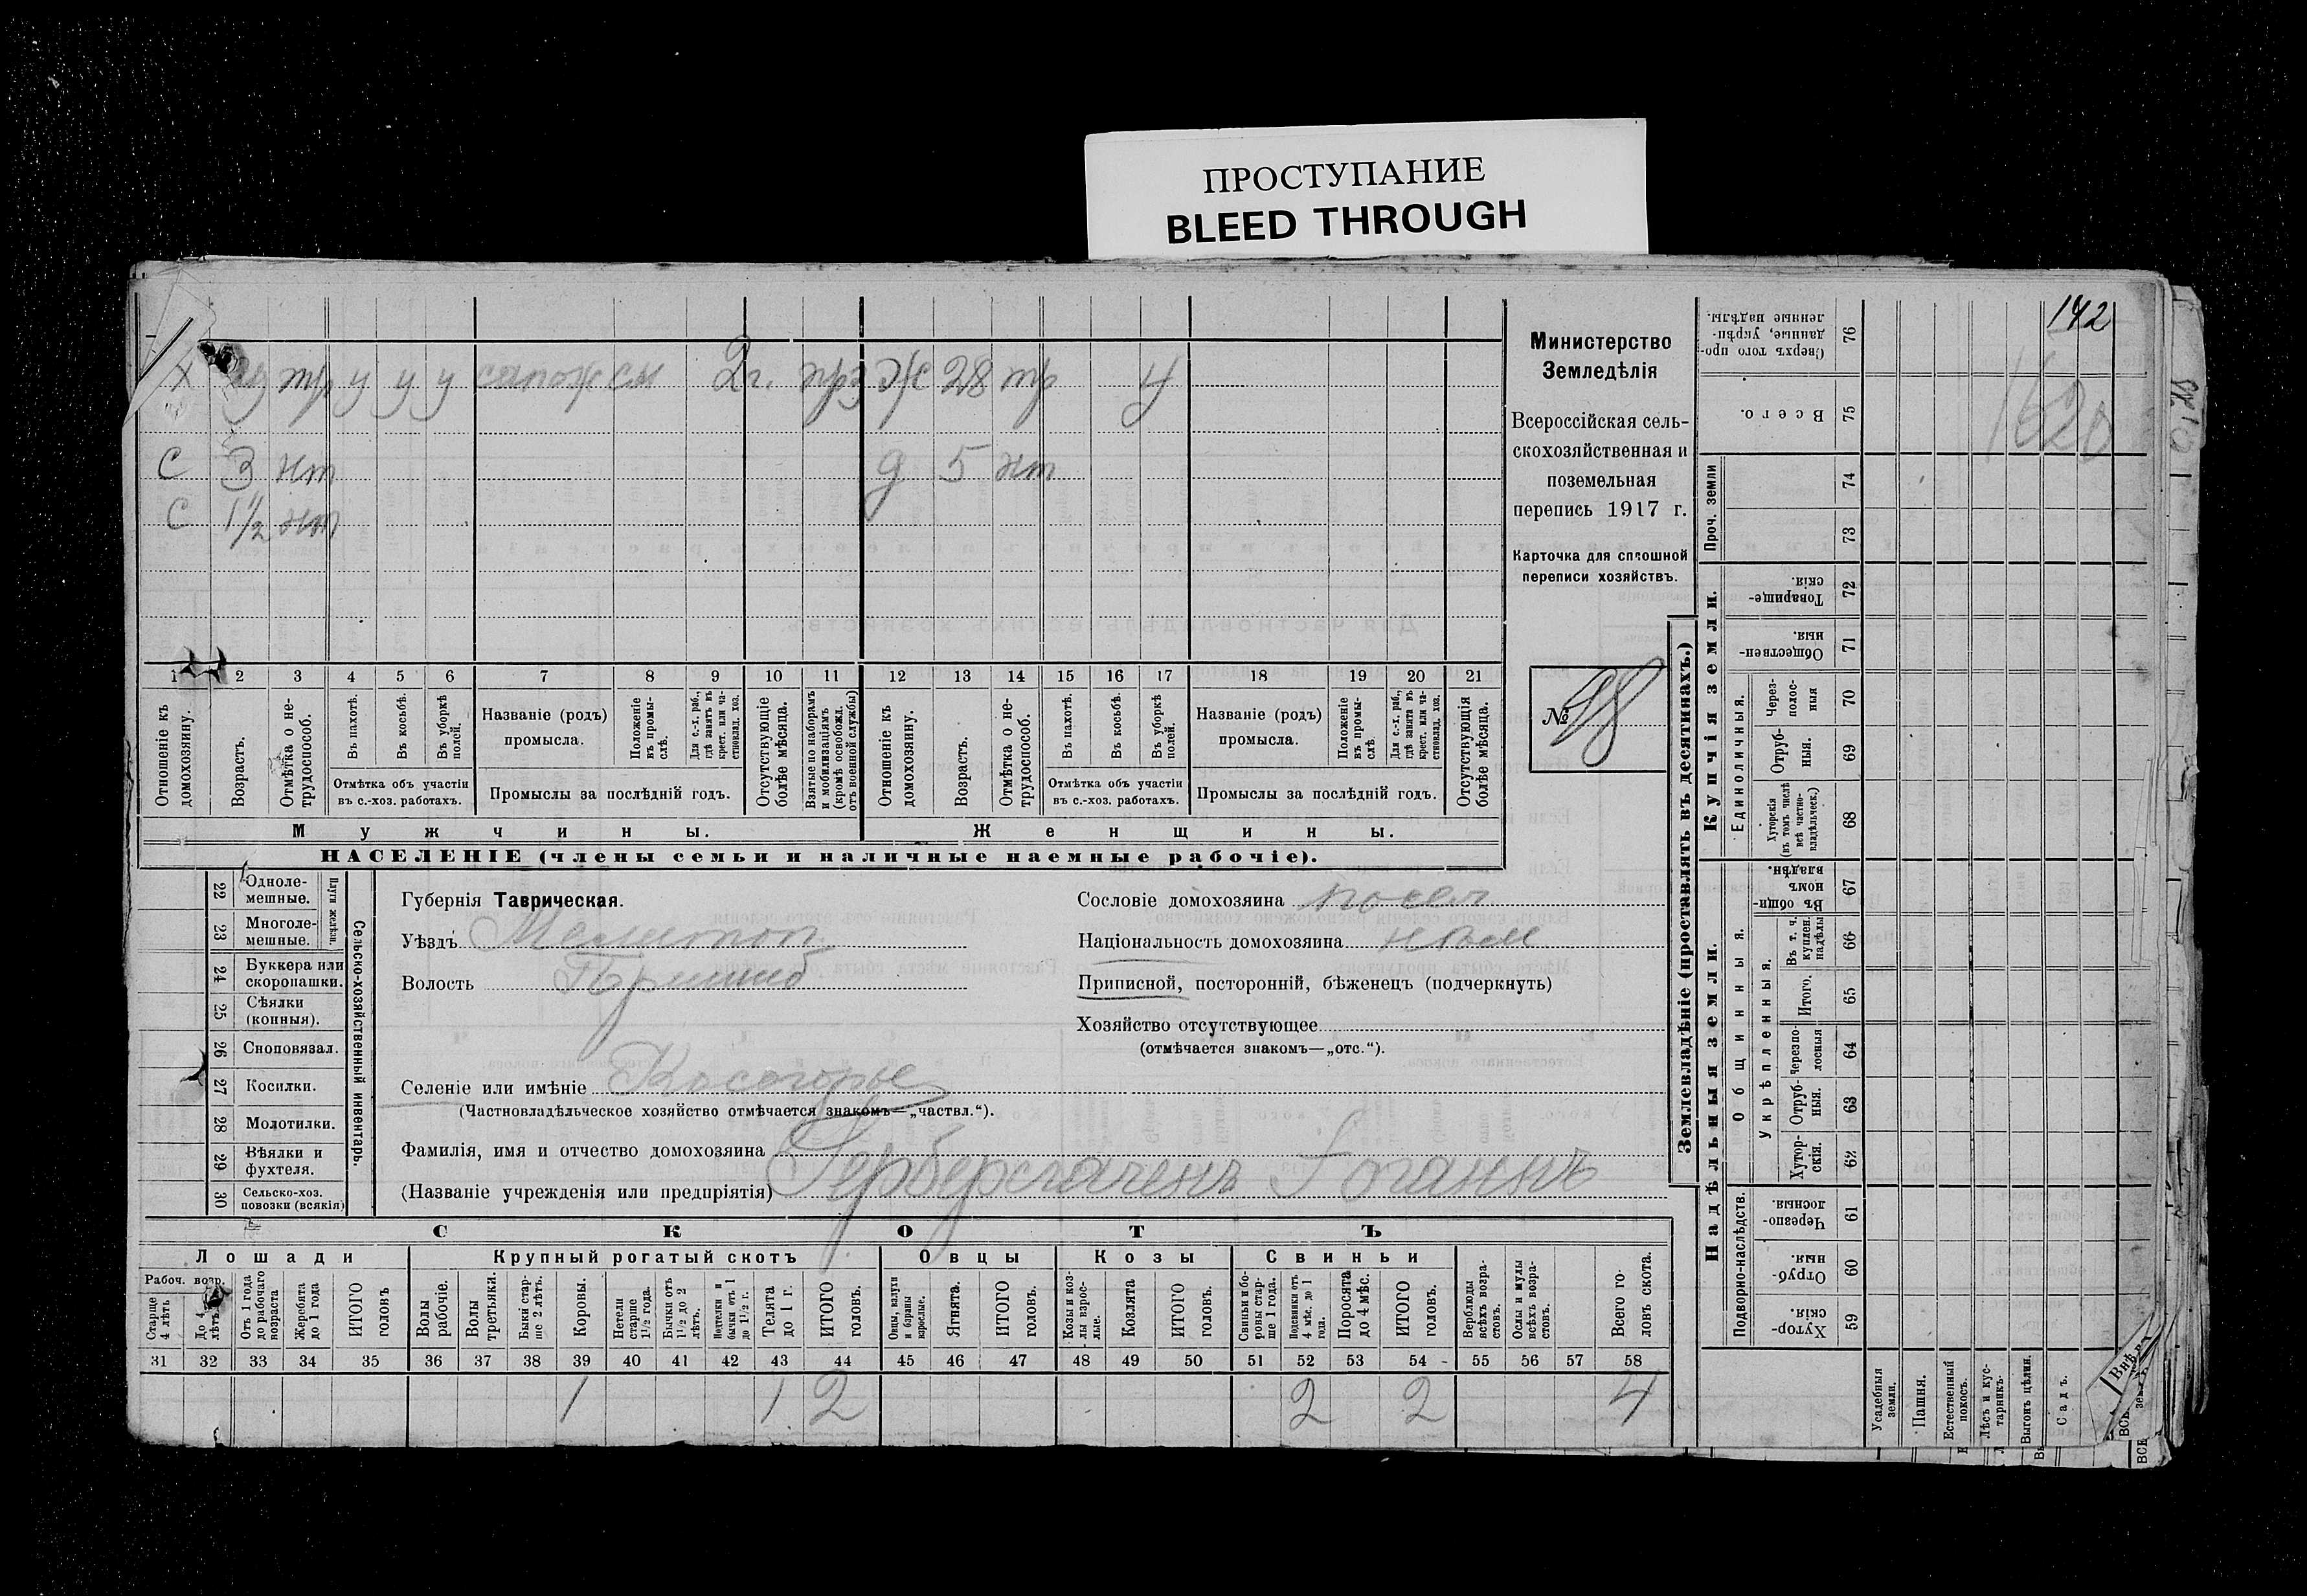 ПРОСТУПАНИЕ
BLEED THROUGH
142
Х тр у у у сапож 2 г. Ж 28 тр у
С 3 нт д 5 нт
С 1½ нт
1 2 3 4 5 6 7 8 9 10 11 12 13 14 15 16 17 18 19 20 21
Отношеніе къ домохозяину.
Возрастъ.
Отмѣтка о не-трудоспособ.
Въ пахотѣ.
Въ косьбѣ.
Въ уборкѣ полей.
Отмѣтка объ участіи въ с.-хоз. работахъ.
Названіе (родъ) промысла.
Положеніе въ промы-слѣ.
Для с.-х. раб., гдѣ занятъ въ крест. или ча-стновлад. хоз.
Промыслы за послѣдній годъ.
Отсутствующіе болѣе мѣсяца.
Взятые по наборамъ и мобилизаціямъ (кромѣ освобожд. отъ военной службы)
Отношеніе къ домохозяину.
Возрастъ.
Отмѣтка о не-трудоспособ.
Въ пахотѣ.
Въ косьбѣ.
Въ уборкѣ полей.
Отмѣтка объ участіи въ с.-хоз. работахъ.
Названіе (родъ) промысла.
Положеніе въ промы-слѣ.
Для с.-х. раб., гдѣ занята въ крест. или ча-стновлад. хоз.
Промыслы за послѣдній годъ.
Отсутствующія болѣе мѣсяца.
Мужчины. Женщины.
НАСЕЛЕНІЕ (члены семьи и наличные наемные рабочіе).
Министерство
Земледѣлія
Всероссійская сель-
скохозяйственная и
поземельная
перепись 1917 г.
Карточка для сплошной
переписи хозяйствъ.
№ 98
22 Одноле-мешные.
23 Многоле-мешные.
Плуги желѣзн.
24 Буккера или скоропашки.
25 Сѣялки (конныя).
26 Сноповязал.
27 Косилки.
28 Молотилки.
29 Вѣялки и фухтеля.
30 Сельско-хоз. повозки (всякія)
Сельско-хозяйственный инвентарь.
Губернія Таврическая.
Уѣздъ Мелитоп
Волость Пришиб
Селеніе или имѣніе Косогорье
(Частновладѣльческое хозяйство отмѣчается знакомъ—„частвл.“).
Фамилія, имя и отчество домохозяина
(Названіе учрежденія или предпріятія) Герберсгагенъ Іоганнъ
Сословіе домохозяина посел
Національность домохозяина нѣм
Приписной, посторонній, бѣженецъ (подчеркнуть)
Хозяйство отсутствующее
(отмѣчается знакомъ—„отс.“).
СКОТЪ
Лошади Крупный рогатый скотъ Овцы Козы Свиньи
Рабоч. возр.
Старше 4 лѣтъ
До 4 лѣтъ
Отъ 1 года до рабочаго возраста
Жеребята до 1 года
ИТОГО головъ
Волы рабочіе.
Волы третьяки.
Быки стар-ше 2 лѣтъ.
Коровы.
Нетели старше 1½ года.
Бычки отъ 1½ до 2 лѣтъ.
Подтелки и бычки отъ 1 до 1½ г.
Телята до 1 г.
ИТОГО головъ.
Овцы, валухи и бараны взрослые.
Ягнята.
ИТОГО головъ.
Козы и коз-лы взрос-лые.
Козлята
ИТОГО головъ.
Свиньи и бо-ровы стар-ше 1 года.
Подсвинки отъ 4 мѣс. до 1 года.
Поросята до 4 мѣс.
ИТОГО головъ.
Верблюды всѣхъ возра-стовъ.
Ослы и мулы всѣхъ возра-стовъ.
Всего го-ловъ скота.
31 32 33 34 35 36 37 38 39 40 41 42 43 44 45 46 47 48 49 50 51 52 53 54 55 56 57 58
1 1 2 2 2 4
Землевладѣніе (проставлять въ десятинахъ.)
Сверхъ того про-данные, укрѣп-ленные надѣлы. 76
Всего. 75
Проч. земли 74 73
Купчія земли.
Товарище-скія. 72
Обществен-ныя. 71
Единоличныя.
Через-полос-ныя 70
Отруб-ныя. 69
Хуторскія (въ томъ числѣ всѣ частно-владѣльческ.) 68
Надѣльныя земли.
Общинныя.
Въ общин-номъ владѣн. 67
Укрѣпленныя.
Въ т. ч. куплен. надѣлы 66
Итого. 65
Черезпо-лосныя 64
Отруб-ныя. 63
Хутор-скія. 62
Подворно-наслѣдств.
Черезпо-лосныя. 61
Отруб-ныя. 60
Хутор-скія. 59
Усадебныя земли.
Пашня.
Естественный покосъ.
Лѣсъ и кус-тарникъ.
Выгонъ цѣлин.
Садъ.